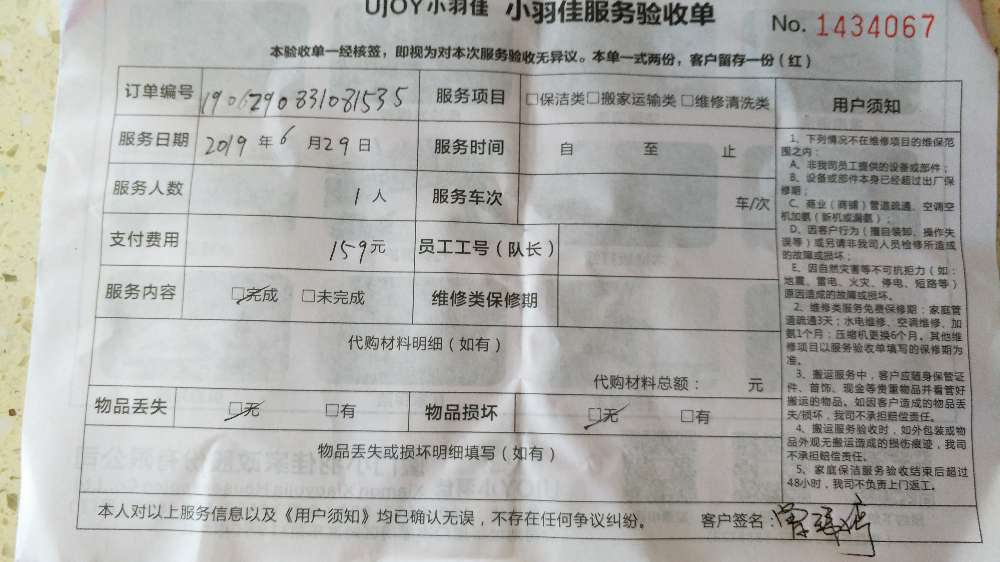 UJOY小羽佳 小羽佳服务验收单 No. 1434067
本验收单一经核签，即视为对本次服务验收无异议。本单一式两份，客户留存一份（红）
订单编号 1906290831081535 服务项目 □保洁类□搬家运输类□维修清洗类
服务日期 2019年6月29日 服务时间 自 至 止
服务人数 1人 服务车次 车/次
支付费用 159元 员工工号（队长）
服务内容 ☑完成 □未完成 维修类保修期
代购材料明细（如有）
代购材料总额： 元
物品丢失 ☑无 □有 物品损坏 ☑无 □有
物品丢失或损坏明细填写（如有）
本人对以上服务信息以及《用户须知》均已确认无误，不存在任何争议纠纷。 客户签名：
用户须知
1、下列情况不在维修项目的维保范
围之内：
A、非我司员工提供的设备或部件；
B、设备或部件本身已经超过出厂保
修期；
C、商业（商铺）管道疏通、空调空
机加氨（新机或漏氨）；
D、因客户行为（擅自装卸、操作失
误等）或另请非我司人员检修所造成
的故障或损坏；
E、因自然灾害等不可抗拒力（如：
地震、雷电、火灾、停电、短路等）
原因造成的故障或损坏。
2、维修类服务免费保修期：家庭管
道疏通3天；水电维修、空调维修、加
氨1个月；压缩机更换6个月。其他维
修项目以服务验收单填写的保修期为
准。
3、搬运服务中，客户应随身保管证
件、首饰、现金等贵重物品并看管好
搬运的物品。如因客户造成的物品丢
失/损坏，我司不承担赔偿责任。
4、搬运服务验收时，如外包装或物
品外观无搬运造成的损伤痕迹，我司
不承担赔偿责任。
5、家庭保洁服务验收结束后超过
48小时，我司不负责上门返工。